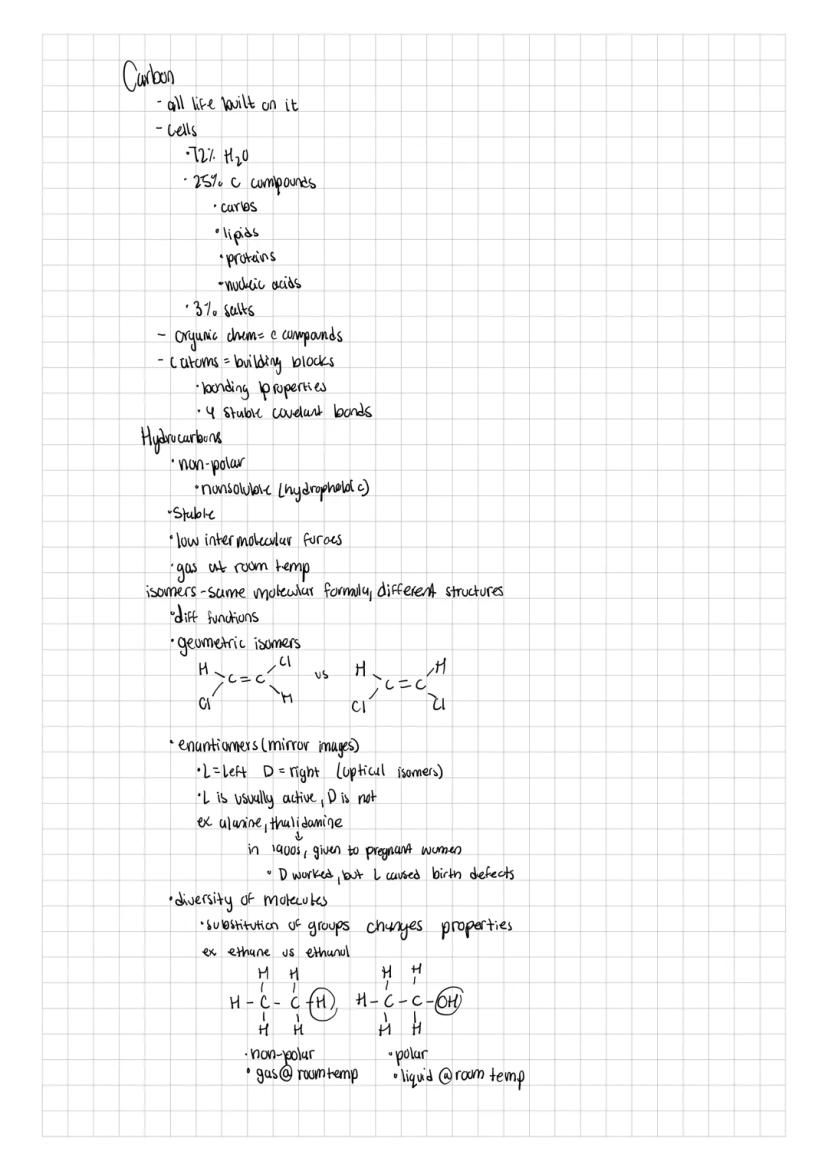 Carbon
- all life built on it
- Cells
• 72% H₂O
• 25% C compounds
• carbs
• lipids
• proteins
• nucleic acids
• 3% salts
- Organic chem = C compounds
- C atoms = building blocks
• bonding properties
• 4 stable covelant bonds
Hydrocarbons
• non-polar
• nonsoluble (hydrophobic)
• Stable
• low intermolecular forces
• gas at room temp
isomers - same molecular formula, different structures
• diff functions
• geometric isomers
H Cl vs H H
C = C C = C
Cl H Cl Cl
• enantiomers (mirror images)
• L = left D = right (optical isomers)
• L is usually active, D is not
ex alanine, thalidamine
↓
in 1900s, given to pregnant women
• D worked, but L caused birth defects
• diversity of molecules
• substitution of groups changes properties
ex ethane vs ethanol
H H H H
H - C - C - H H - C - C - OH
H H H H
• non-polar • polar
• gas @ room temp • liquid @ room temp